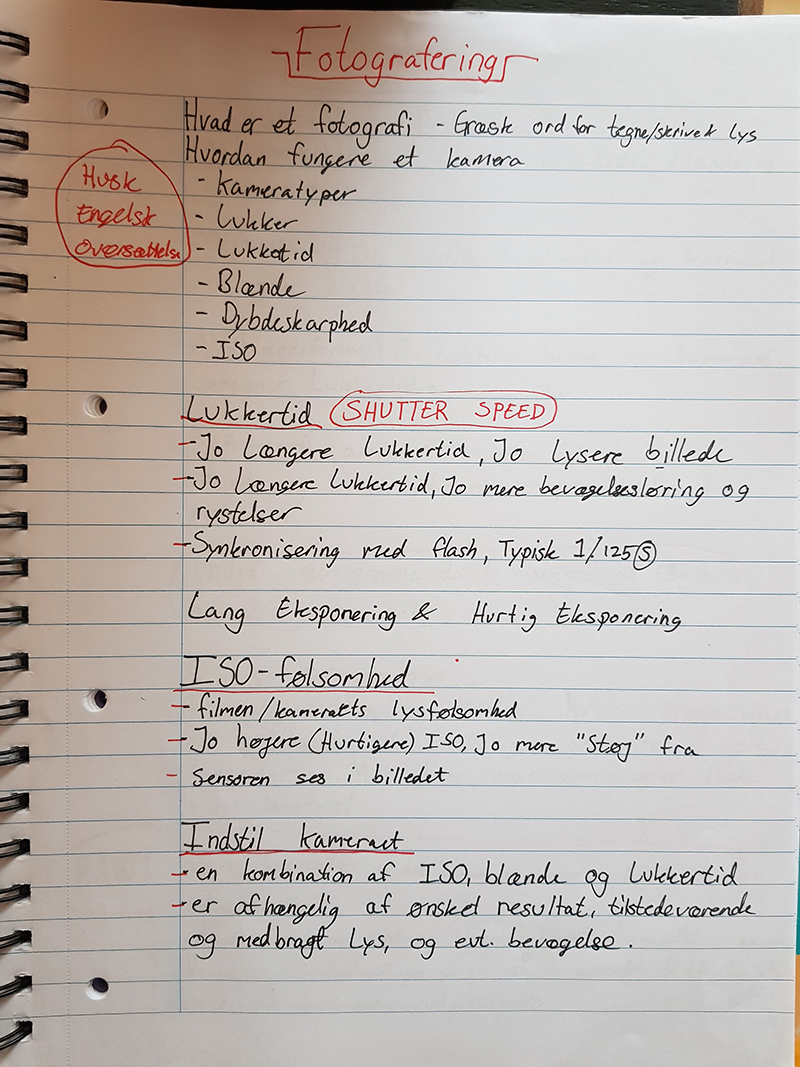 Fotografering
Hvad er et fotografi - Græsk ord for tegne/skrive lys
Hvordan fungere et kamera
Husk
Engelsk
Oversættelse
- Kameratyper
- Lukker
- Lukketid
- Blænde
- Dybdeskarphed
- ISO
Lukkertid SHUTTER SPEED
- Jo Længere Lukkertid, Jo Lysere billede
- Jo Længere Lukkertid, Jo mere bevægelsesløring og
rystelser
- Synkronisering med flash, Typisk 1/125 S
Lang Eksponering & Hurtig Eksponering
ISO-følsomhed
- filmen/kameraets lysfølsomhed
- Jo højere (Hurtigere) ISO, Jo mere "Støj" fra
- Sensoren ses i billedet
Indstil kameraet
- en kombination af ISO, blænde og Lukkertid
- er afhængelig af ønsket resultat, tilstedeværende
og medbragt Lys, og evt. bevægelse.